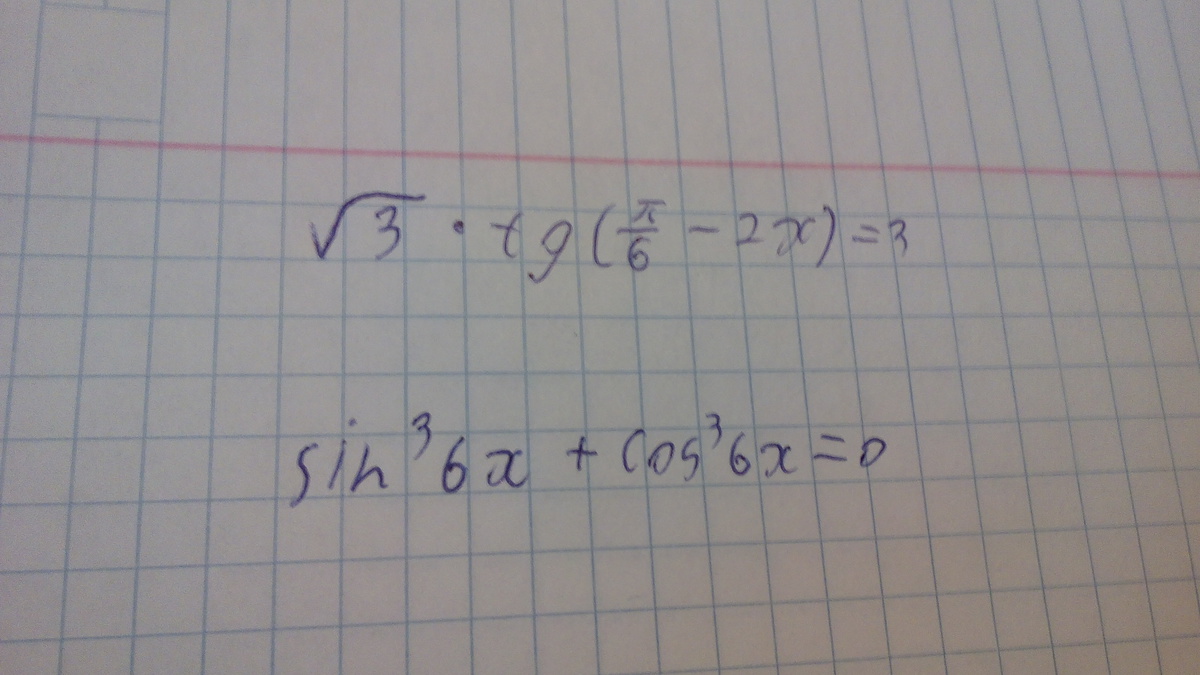 √3 · tg(π/6 - 2x) = 3
sin³6x + cos³6x = 0